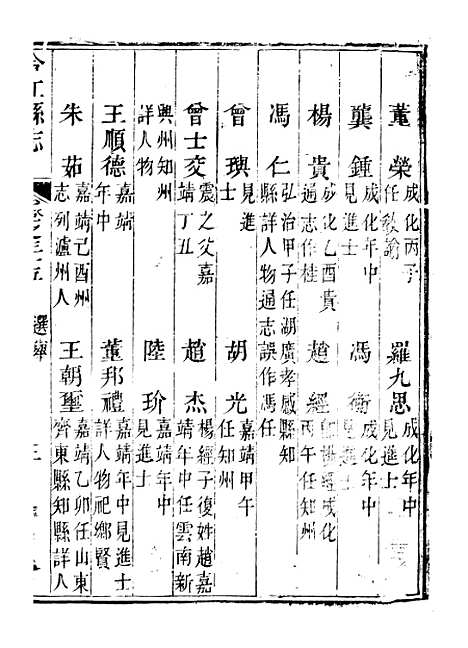 董榮 成化丙子任教諭
羅九思 成化年中見進士
龔鍾 成化年中見進士
馮衡 成化年中見進士
楊貴 成化乙酉貴通志作桂
趙經 成化丙午任知州
馮仁 弘治甲子任湖廣孝感縣知縣詳人物通志誤作馮任
曾璵 見進士
胡光 嘉靖甲午任知州
曾士交 震之父嘉靖丁丑
趙杰 楊經子復姓趙嘉靖年中任雲南新
興州知州詳人物
陸玠 嘉靖年中見進士
王順德 嘉靖年中
董邦禮 嘉靖年中見進士詳人物祀鄉賢
朱茹 嘉靖己酉州志列瀘州人
王朝璽 嘉靖乙卯任山東齊東縣知縣詳人
合江縣志
選舉
三